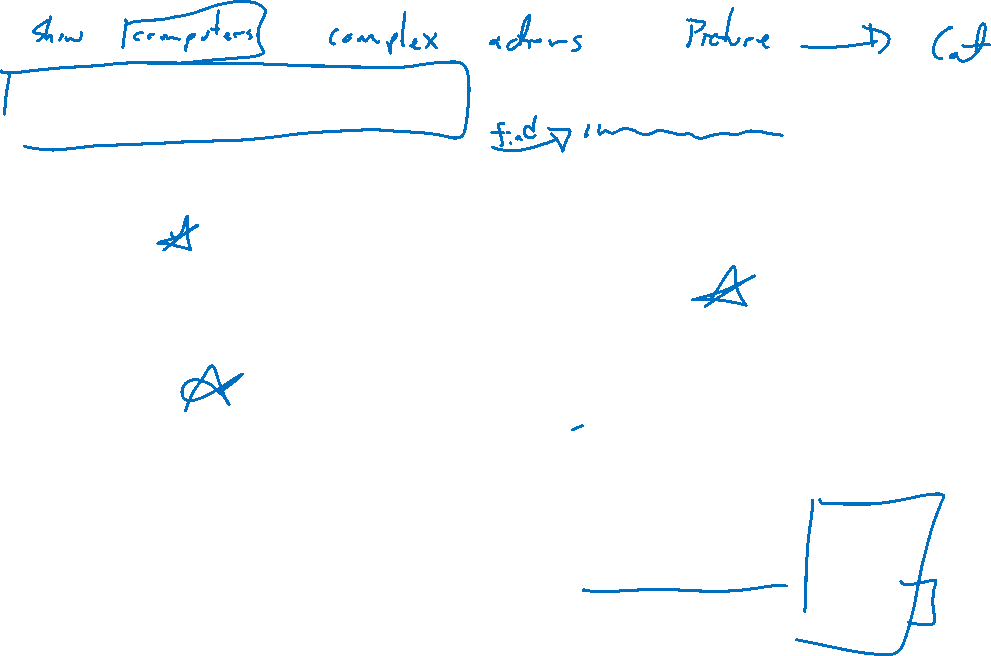 show computers complex actions Picture → Cat
find